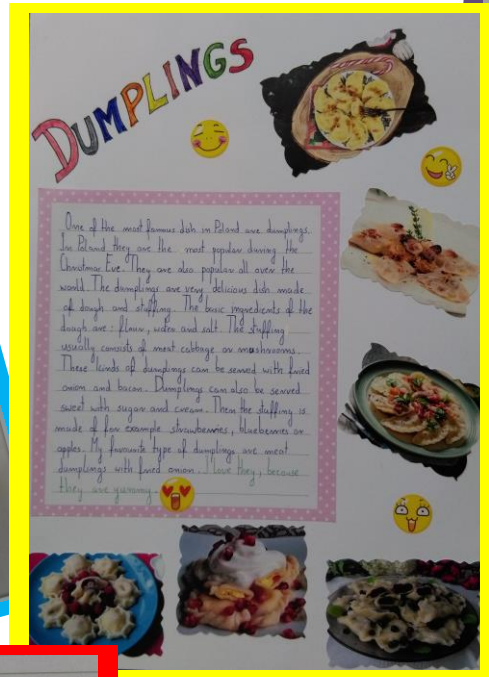 DUMPLINGS
One of the most famous dish in Poland are dumplings.
In Poland they are the most popular during the
Christmas Eve. They are also popular all over the
world. The dumplings are very delicious dish made
of dough and stuffing. The basic ingredients of the
dough are: flour, water and salt. The stuffing
usually consists of meat cabbage or mushrooms.
These kinds of dumplings can be served with fried
onion and bacon. Dumplings can also be served
sweet with sugar and cream. Then the stuffing is
made of for example strawberries, blueberries or
apples. My favourite type of dumplings are meat
dumplings with fried onion. I love they, because
they are yummy.